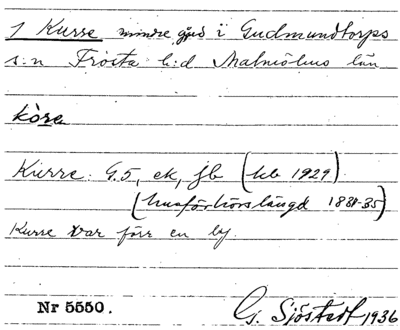 1 Kurre mindre gård i Gudmundtorps
s:n Frosta h:d Malmöhus län
kòre
Kurre: G.5, ek, jb (kb 1929)
(husförhörslängd 1831-35)
Kurre var förr en by.
Nr 5550. G. Sjöstedt 1936